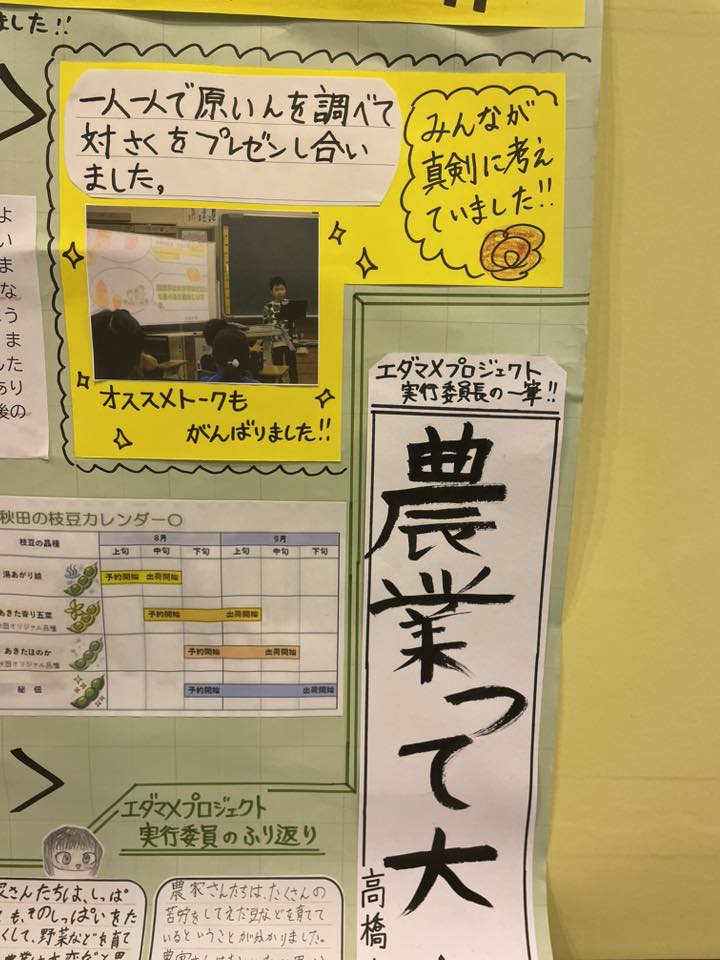 ました!!
一人一人で原いんを調べて
対さくをプレゼンし合い
ました。
みんなが
真剣に考え
ていました!!
オススメトークも
がんばりました!!
よ
い
ま
な
う
ま
した
あり
後の
エダマメプロジェクト
実行委員長の一筆!!
農業って大
高橋
秋田の枝豆カレンダー〇
枝豆の品種
8月
9月
上旬 中旬 下旬 上旬 中旬 下旬
湯あがり娘 予約開始 出荷開始
あきた香り五葉 予約開始 出荷開始
秋田オリジナル品種
あきたほのか 予約開始 出荷開始
秋田オリジナル品種
秘伝 予約開始 出荷開始
エダマメプロジェクト
実行委員のふり返り
家さんたちは、しっぱ
ても、そのしっぱいをた
くして、野菜などを育て
農家さんたちは、たくさんの
苦労をしてえだ豆などを育てて
いるということが分かりました。